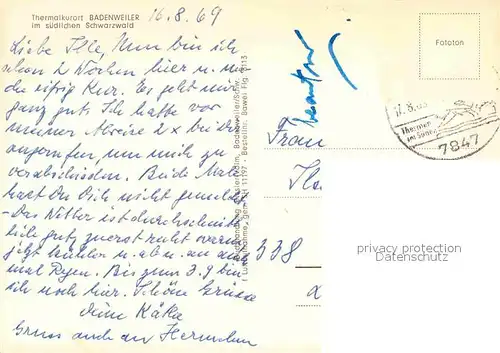 Thermalkurort BADENWEILER
im südlichen Schwarzwald
16.8.69
Liebe Ilse, Nun bin ich
schon 2 Wochen hier u.
die eifrig Kur. Es geht mir
ganz gut. Ich hatte vor
meiner Abreise 2x bei Dir
angerufen, um mich zu
verabschieden. Beide Male
hast Du Dich nicht gemeldet
- Das Wetter ist durchschnitt-
lich gut, zuerst recht warm
jetzt kühler u. ab u. an auch
mal Regen. Bis zum 3.9 bin
ich noch hier. Schöne Grüsse
Deine Käke
Gruss auch an Hermchen
Fototon
7847
338
privacy protection
Datenschutz